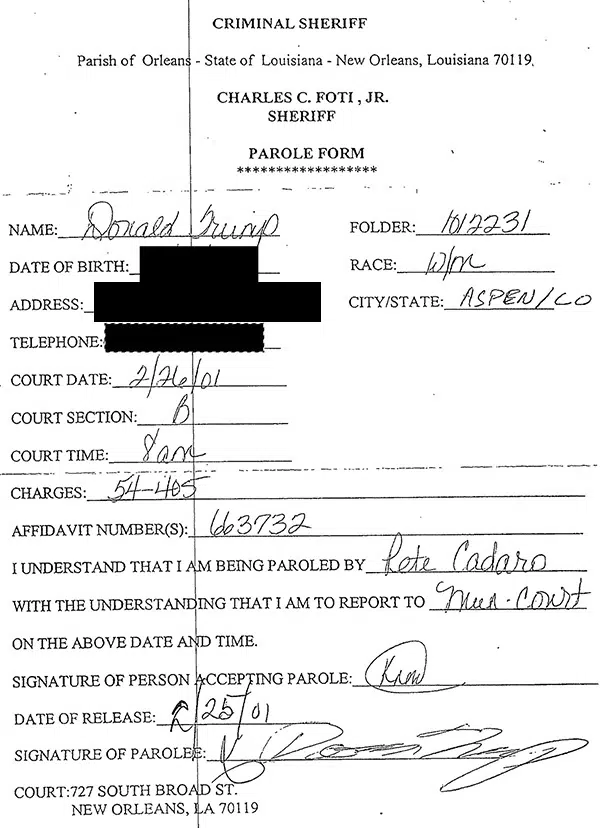 CRIMINAL SHERIFF
Parish of Orleans - State of Louisiana - New Orleans, Louisiana 70119
CHARLES C. FOTI , JR.
SHERIFF
PAROLE FORM
******************
NAME: Donald Trump FOLDER: 1012231
DATE OF BIRTH: RACE: W/M
ADDRESS: CITY/STATE: ASPEN/CO
TELEPHONE:
COURT DATE: 2/26/01
COURT SECTION: B
COURT TIME: 8am
CHARGES: 54-405
AFFIDAVIT NUMBER(S): 663732
I UNDERSTAND THAT I AM BEING PAROLED BY Pete Cadaro
WITH THE UNDERSTANDING THAT I AM TO REPORT TO Mun. Court
ON THE ABOVE DATE AND TIME.
SIGNATURE OF PERSON ACCEPTING PAROLE:
DATE OF RELEASE: 2/25/01
SIGNATURE OF PAROLEE: X
COURT:727 SOUTH BROAD ST.
NEW ORLEANS, LA 70119